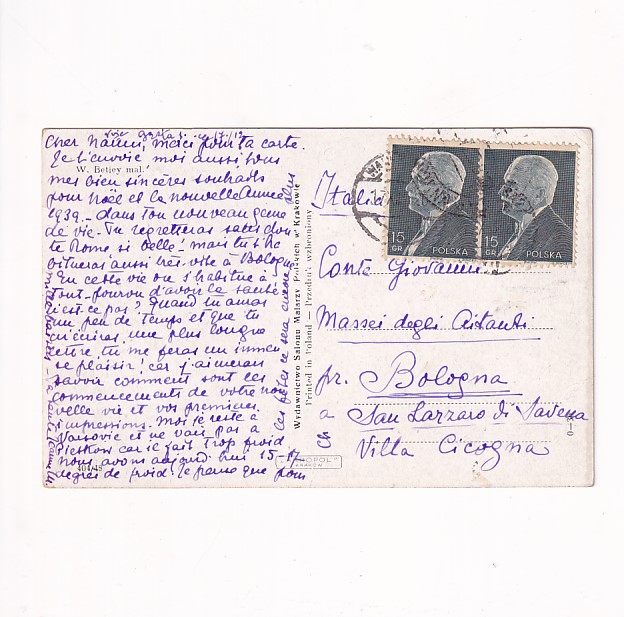 Cher Nanni, merci pour ta carte.
Je t'envoie moi aussi tous
W. Betley mal.
mes bien sincères souhaits
pour Noël et la nouvelle Année
1939 - dans ton nouveau genre
de vie. Tu regretteras sans dou
te Rome si belle! mais tu t'ha
bitueras aussi très vite à Bologne
En cette vie on s'habitue à
tout - pourvu d'avoir la santé
n'est-ce pas? Quand tu auras
un peu de temps et que tu
m'écriras une plus longue
lettre, tu me feras un immen
se plaisir, car j'aimerais
savoir comment sont ces
commencements de votre nou
velle vie et vos premières
impressions. Moi je reste à
Varsovie et ne vais pas à
car il fait trop froid
nous avons aujourd'hui 15-17
degrés de froid. Je pense que pour
les fêtes ce sera encore plus
404/48
Wydawnictwo Salonu Malarzy Polskich w Krakowie
Printed in Poland — Przedruk wzbroniony
KRAKÓW
15 GR POLSKA
15 GR POLSKA
Italia
Conte Giovanni
Massei degli
pr. Bologna
a San Lazzaro di Savena
Villa Cicogna